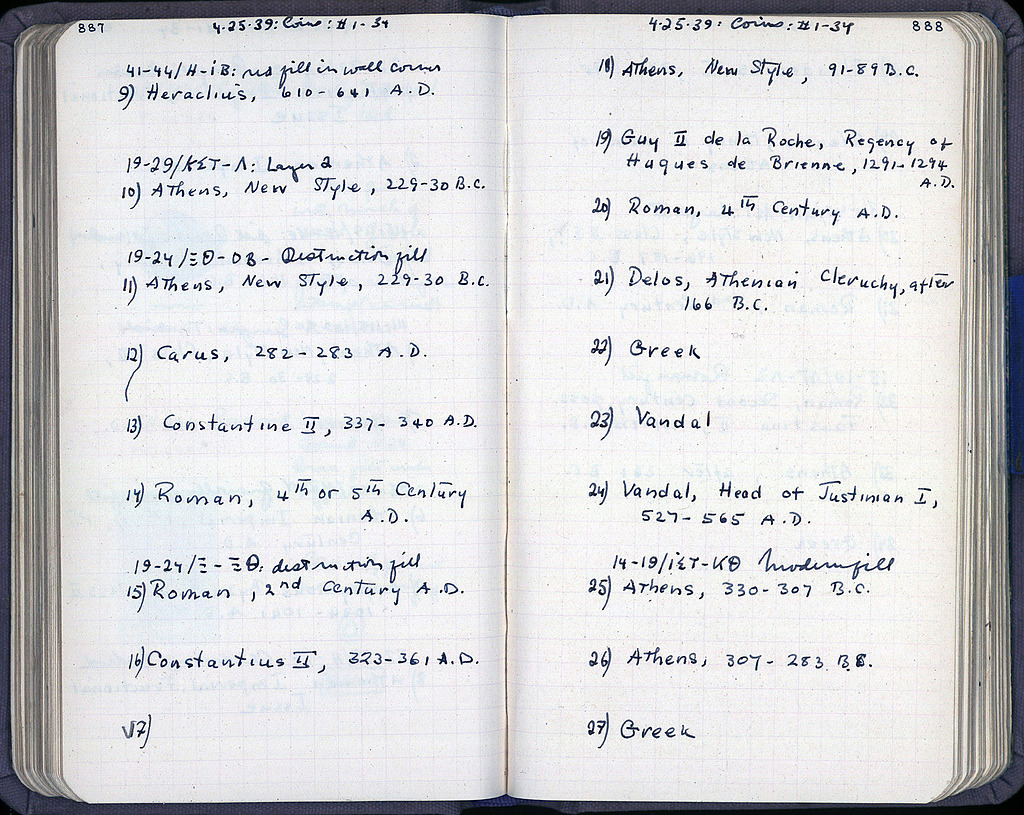 887
4-25-39: Coins: #1-34
41-44/H-iB: no fill in well corner
9) Heraclius, 610-641 A.D.
19-29/KΣT-Λ: Layer 2
10) Athens, New Style, 229-30 B.C.
19-24/ΞΘ-OB - Destruction fill
11) Athens, New Style, 229-30 B.C.
12) Carus, 282-283 A.D.
13) Constantine II, 337-340 A.D.
14) Roman, 4th or 5th Century
A.D.
19-24/Ξ-ΞΘ: destruction fill
15) Roman, 2nd Century A.D.
16) Constantius II, 323-361 A.D.
17)
4-25-39: Coins: #1-34
888
18) Athens, New Style, 91-89 B.C.
19) Guy II de la Roche, Regency of
Huques de Brienne, 1291-1294
A.D.
20) Roman, 4th Century A.D.
21) Delos, Athenian Cleruchy, after
166 B.C.
22) Greek
23) Vandal
24) Vandal, Head of Justinian I,
527-565 A.D.
14-19/iΣT-KΘ Modern fill
25) Athens, 330-307 B.C.
26) Athens, 307-283 B.C.
27) Greek